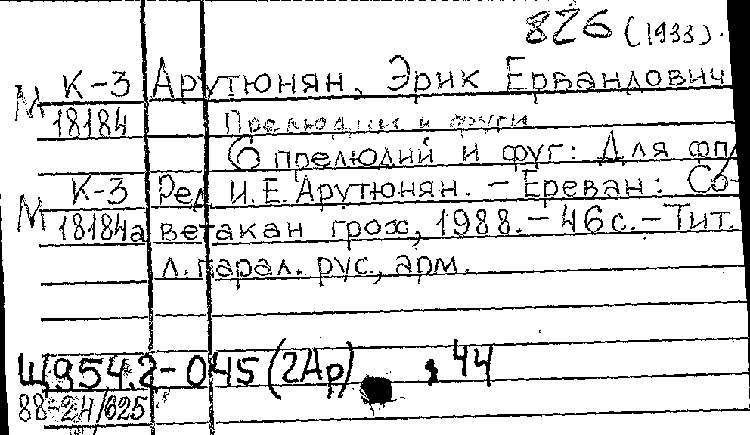 826 (1933).
М К-3 Арутюнян, Эрик Ервандович
18184 Прелюдии и фуги
6 прелюдий и фуг: Для фп/
М К-3 Ред. И.Е. Арутюнян. – Ереван: Со-
18184а ветакан грох, 1988. – 46 с. – Тит.
л. парал. рус., арм.
Щ954.2-045(2Ар) 44
88-24/625